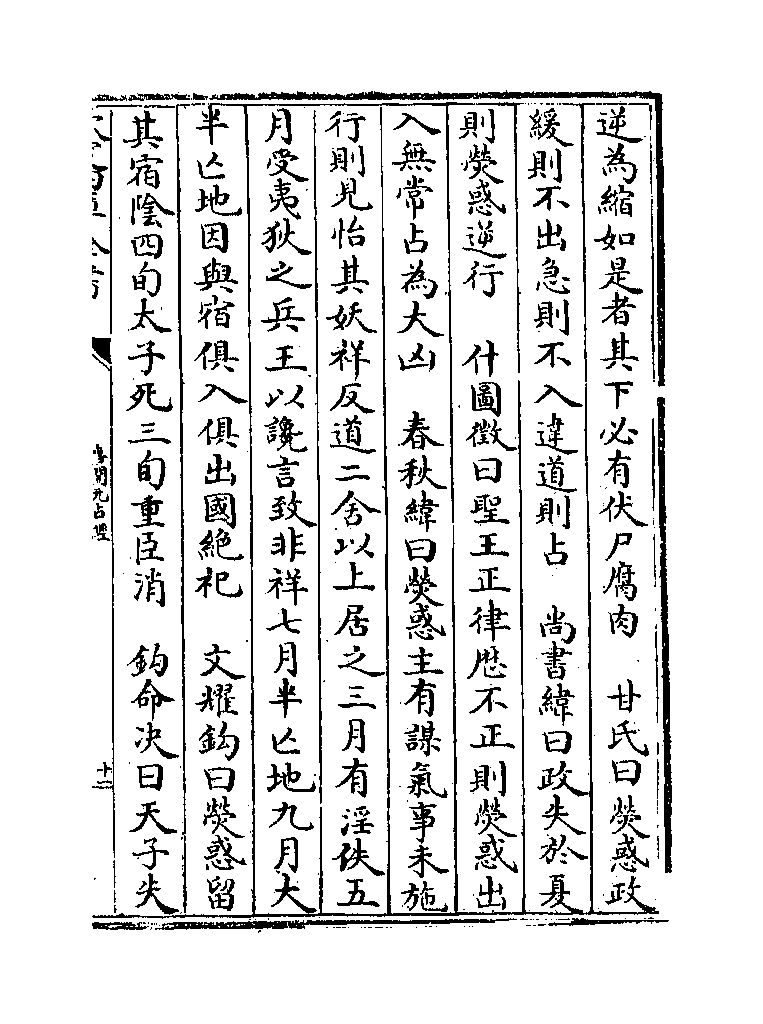 逆為縮如是者其下必有伏尸腐肉　甘氏曰熒惑政
緩則不出急則不入違道則占　尚書緯曰政失於夏
則熒惑逆行　什圖徵曰聖王正律歴不正則熒惑出
入無常占為大凶　春秋緯曰熒惑主有謀氣事未施
行則見怡其妖祥反道二舍以上居之三月有淫佚五
月受夷狄之兵王以讒言致非祥七月半亡地九月大
半亡地因與宿俱入俱出國絶祀　文耀鈎曰熒惑留
其宿陰四旬太子死三旬重臣消　鈎命决曰天子失
唐開元占經
十二